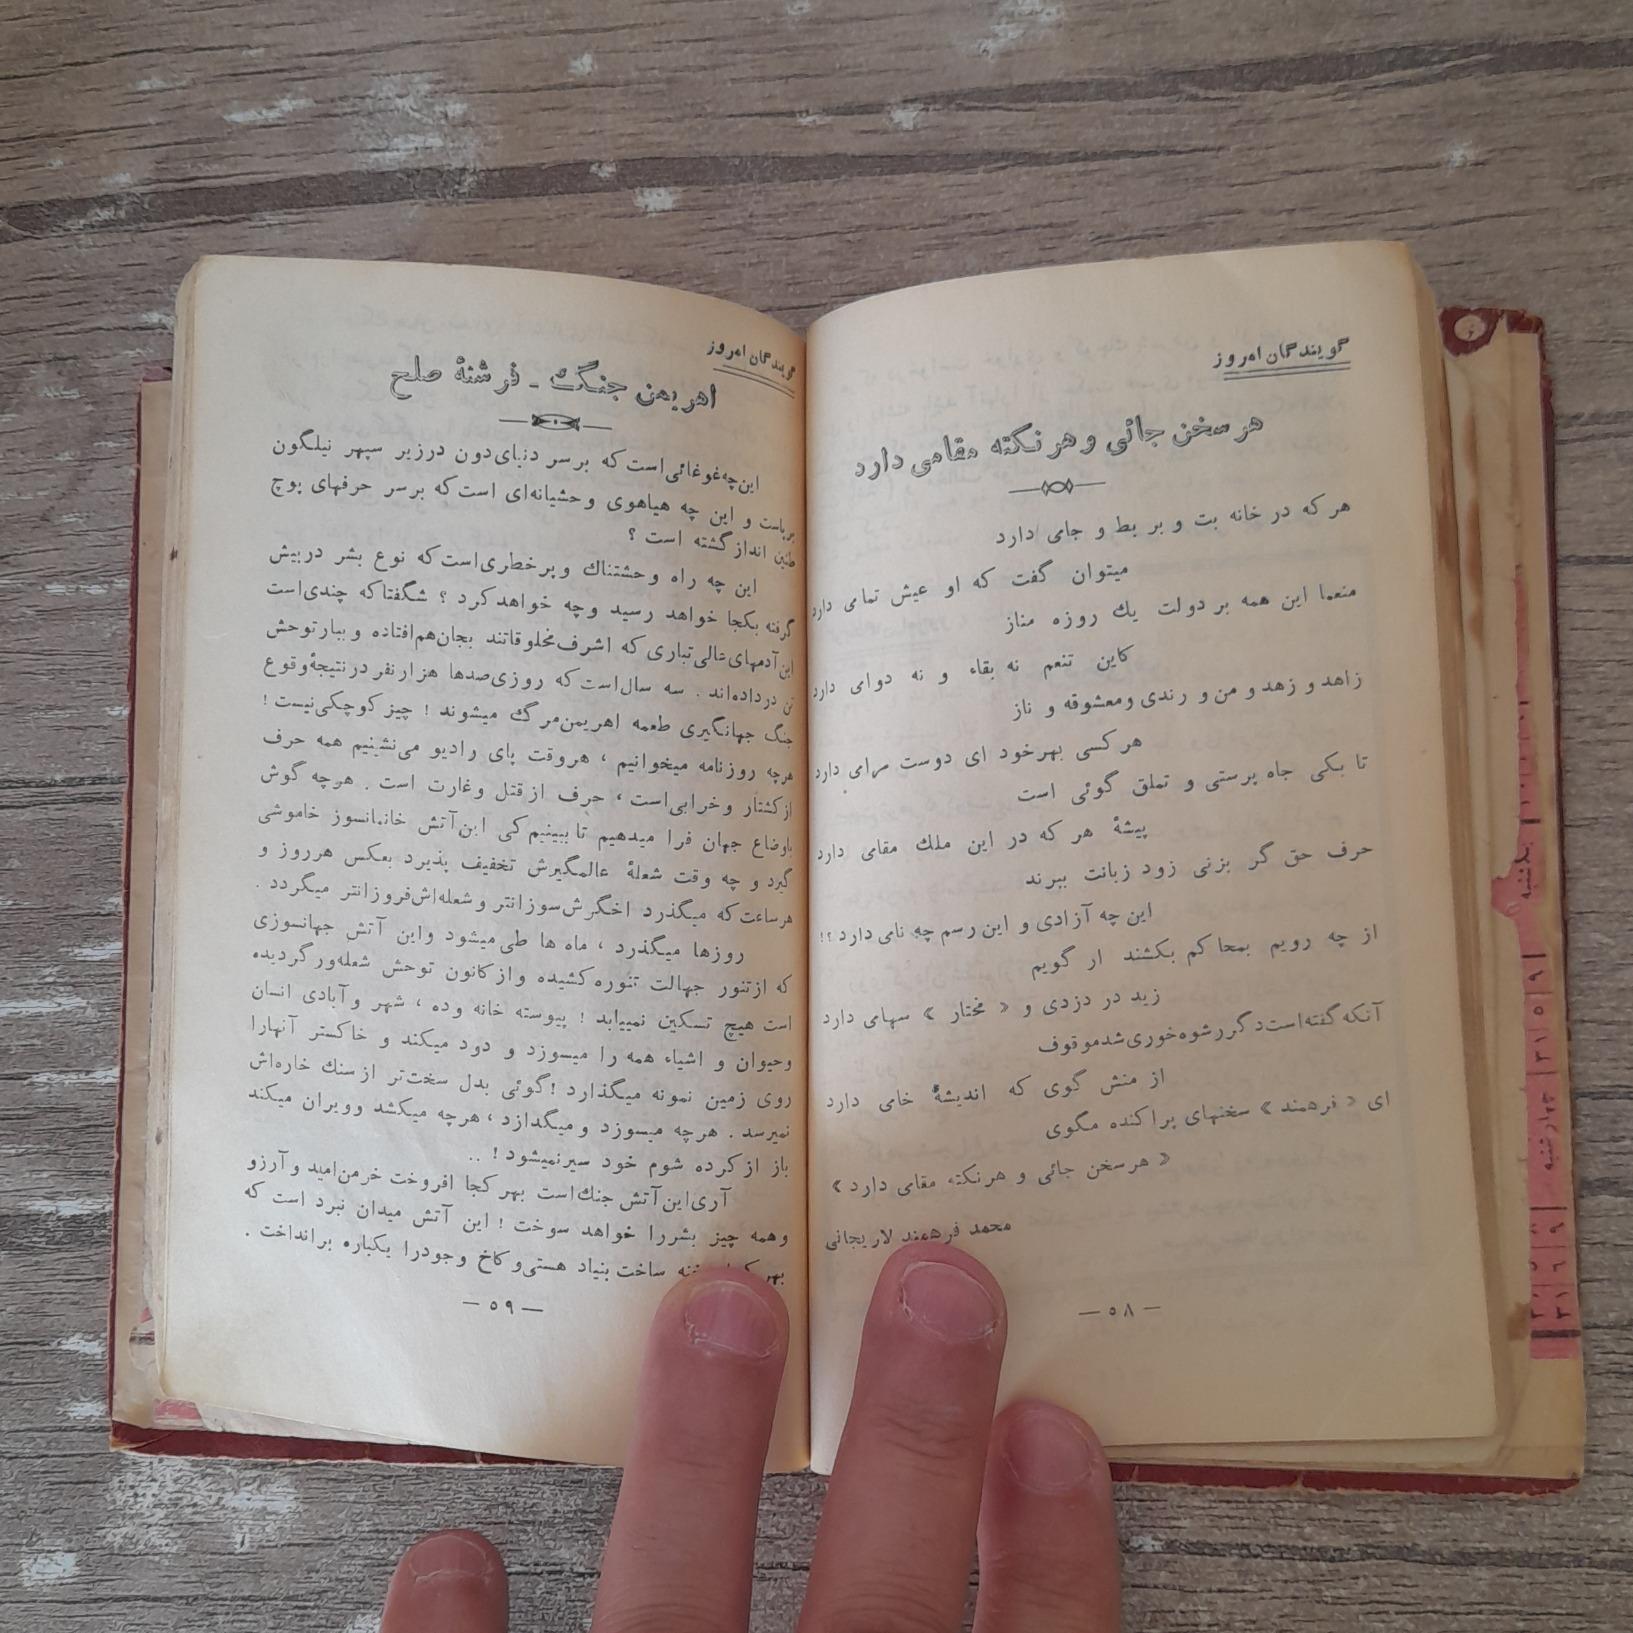 گویندگان امروز
هر سخن جائی و هر نکته مقامی دارد
هر که در خانه بت و بر بط و جامی دارد
میتوان گفت که او عیش تمامی دارد
منعما این همه بر دولت یك روزه مناز
کاین تنعم نه بقاء و نه دوامی دارد
زاهد و زهد و من و رندی ومعشوقه و ناز
هر کسی بهر خود ای دوست مرامی دارد
تا بکی جاه پرستی و تملق گوئی است
پیشهٔ هر که در این ملك مقامی دارد
حرف حق گر بزنی زود زبانت ببرند
این چه آزادی و این رسم چه نامی دارد ؟!
از چه رویم بمحاکم بکشند ار گویم
زید در دزدی و « مختار » سهامی دارد
آنکه گفته است دگر رشوه خوری شد موقوف
از منش گوی که اندیشهٔ خامی دارد
ای « فرهمند » سخنهای پراکنده مگوی
« هر سخن جائی و هر نکته مقامی دارد »
محمد فرهمند لاریجانی
— ۵۸ —
گویندگان امروز
اهریمن جنگ - فرشتهٔ صلح
این چه غوغائی است که بر سر دنیای دون در زیر سپهر نیلگون
برپاست و این چه هیاهوی وحشیانه‌ای است که بر سر حرفهای پوچ
طنین انداز گشته است ؟
این چه راه وحشتناك و پر خطری است که نوع بشر در پیش
گرفته بکجا خواهد رسید وچه خواهد کرد ؟ شگفتا که چندی است
این آدمهای عالی تباری که اشرف مخلوقاتند بجان هم افتاده و ببار توحش
تن در داده‌اند . سه سال است که روزی صدها هزار نفر در نتیجهٔ وقوع
جنگ جهانگیری طعمه اهریمن مرگ میشوند ! چیز کوچکی نیست !
هرچه روزنامه میخوانیم ، هر وقت پای رادیو می نشینیم همه حرف
از کشتار و خرابی است ، حرف از قتل و غارت است . هر چه گوش
باوضاع جهان فرا میدهیم تا ببینیم کی این آتش خانمانسوز خاموشی
گیرد و چه وقت شعلهٔ عالمگیرش تخفیف پذیرد بعکس هر روز و
هر ساعت که میگذرد اخگرش سوزانتر و شعله‌اش فروزانتر میگردد .
روزها میگذرد ، ماه ها طی میشود و این آتش جهانسوزی
که از تنور جهالت تنوره کشیده و از کانون توحش شعله‌ور گردیده
است هیچ تسکین نمییابد ! پیوسته خانه وده ، شهر و آبادی انسان
وحیوان و اشیاء همه را میسوزد و دود میکند و خاکستر آنهارا
روی زمین نمونه میگذارد ! گوئی بدل سخت‌تر از سنك خاره‌اش
نمیرسد . هرچه میسوزد و میگدازد ، هرچه میکشد و ویران میکند
باز از کرده شوم خود سیر نمیشود ! ..
آری این آتش جنك است بهر کجا افروخت خرمن امید و آرزو
وهمه چیز بشر را خواهد سوخت ! این آتش میدان نبرد است که
بهر ساخت بنیاد هستی و کاخ وجود را یکباره برانداخت .
— ۵۹ —
یکشنبه
۳۱|۵|۹
چهارشنبه
۳۱|۶|۹